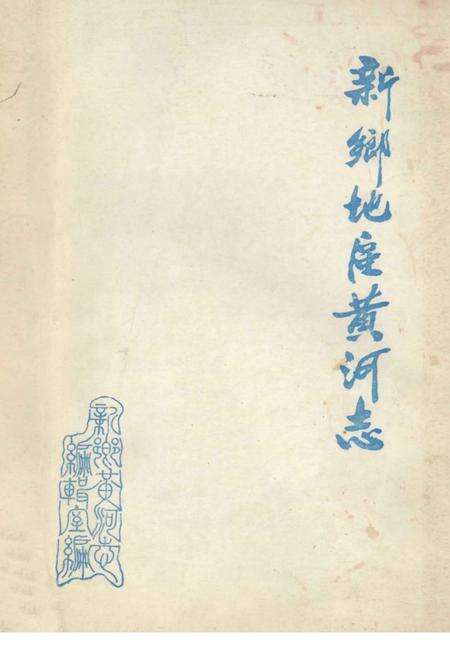 新鄉地区黄河志
新鄉黄河志
編輯室編